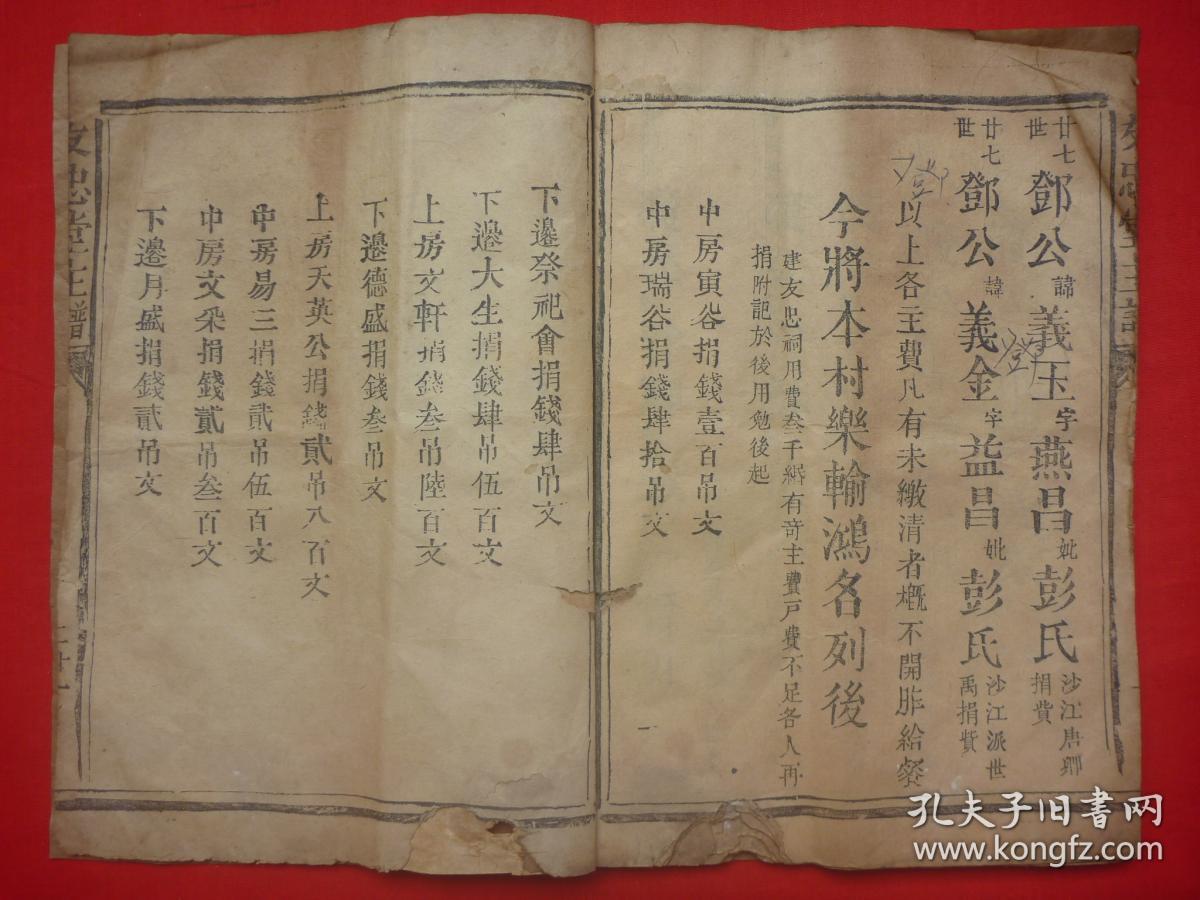 廿七世鄧公諱義玉字燕昌妣彭氏沙江唐卿捐費
廿七世鄧公諱義金字益昌妣彭氏沙江派世禹捐貲
以上各主費凡有未繳清者概不開胙給餐
今將本村樂輸鴻名列後
建友忠祠用費叁千緡有奇主費戸費不足各人再
捐附記於後用勉後起
中房寅谷捐錢壹百吊文
中房瑞谷捐錢肆拾吊文
下邊祭祀會捐錢肆吊文
下邊大生捐錢肆吊伍百文
上房文軒捐錢叁吊陸百文
下邊德盛捐錢叁吊文
上房天英公捐錢貳吊八百文
中房易三捐錢貳吊伍百文
中房文采捐錢貳吊叁百文
下邊月盛捐錢貳吊文
友忠堂主譜
孔夫子旧书网
www.kongfz.com